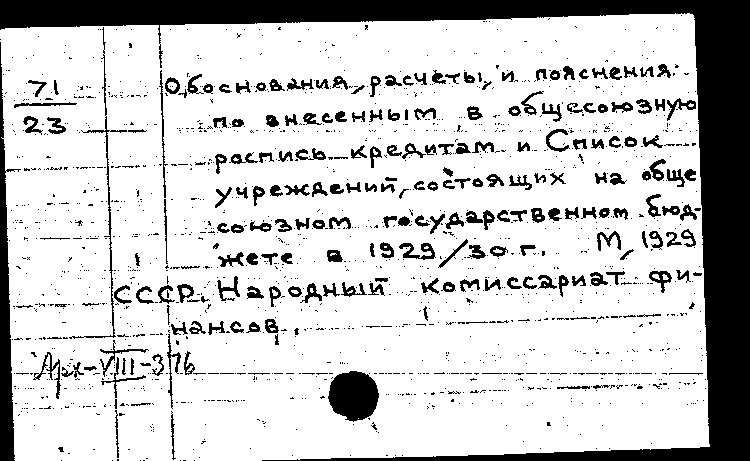 71
23
Обоснования, расчёты, и пояснения
по внесенным в общесоюзную
роспись кредитам и Список
учреждений, состоящих на обще
союзном государственном бюд-
жете в 1929/30 г. М, 1929
СССР. Народный комиссариат фи-
нансов.
Арх-VIII-376